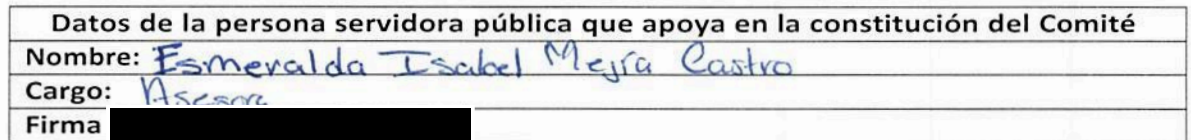 Datos de la persona servidora pública que apoya en la constitución del Comité
Nombre: Esmeralda Isabel Mejía Castro
Cargo: Asesora
Firma